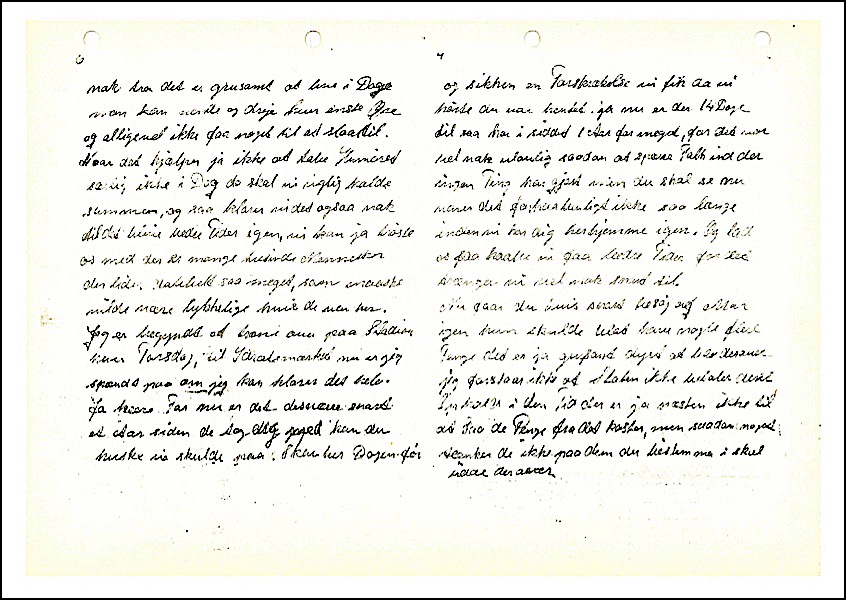 6
nok tro det er grusomt at leve i Dag
man kan vende og dreje hver eneste Øre
og alligevel ikke faa noget til at slaa til.
Naar det hjælper jo ikke at tabe Humøret
særlig ikke i Dag da skal vi rigtig holde
sammen, og saa klarer vi det ogsaa nok
til det bliver bedre Tider igen, vi kan jo trøste
os med der er mange hundre Mennesker
der lider saa meget, som
vilde være lykkelige hvis de var her.
Jeg er begyndt at træne oven paa Stadion
hver Torsdag, til Idrætsmærket nu er jeg
spændt paa om jeg kan klare det hele.
Ja kære Far nu er det desværre snart
et Aar siden de tog dig kan du
huske vi skulde paa Dagen før
7
og sikken en Forskrækkelse vi fik da vi
hørte du var hentet. ja nu er der 14 Dage
til saa har i siddet 1 Aar for meget, for det var
vel nok ulovlig saadan at spærre Folk ind der
ingen Ting har gjort men du skal se nu
varer det forhaabentligt ikke saa længe
inden vi har dig herhjemme igen. Og lad
os saa haabe vi faar bedre Tider for det
trænger vi vel nok snart til.
Nu faar du hvis snart besøg af Mor
igen hun skulde blot have nogle flere
Penge det er jo grusomt dyrt at rejse derover
jeg forstaar ikke at Staten ikke betaler deres
i den Tid der er jo næsten ikke til
at faa de Penge fra det koster, men saadan noget
tænker de ikke paa dem der bestemmer i skal
sidde derovre.